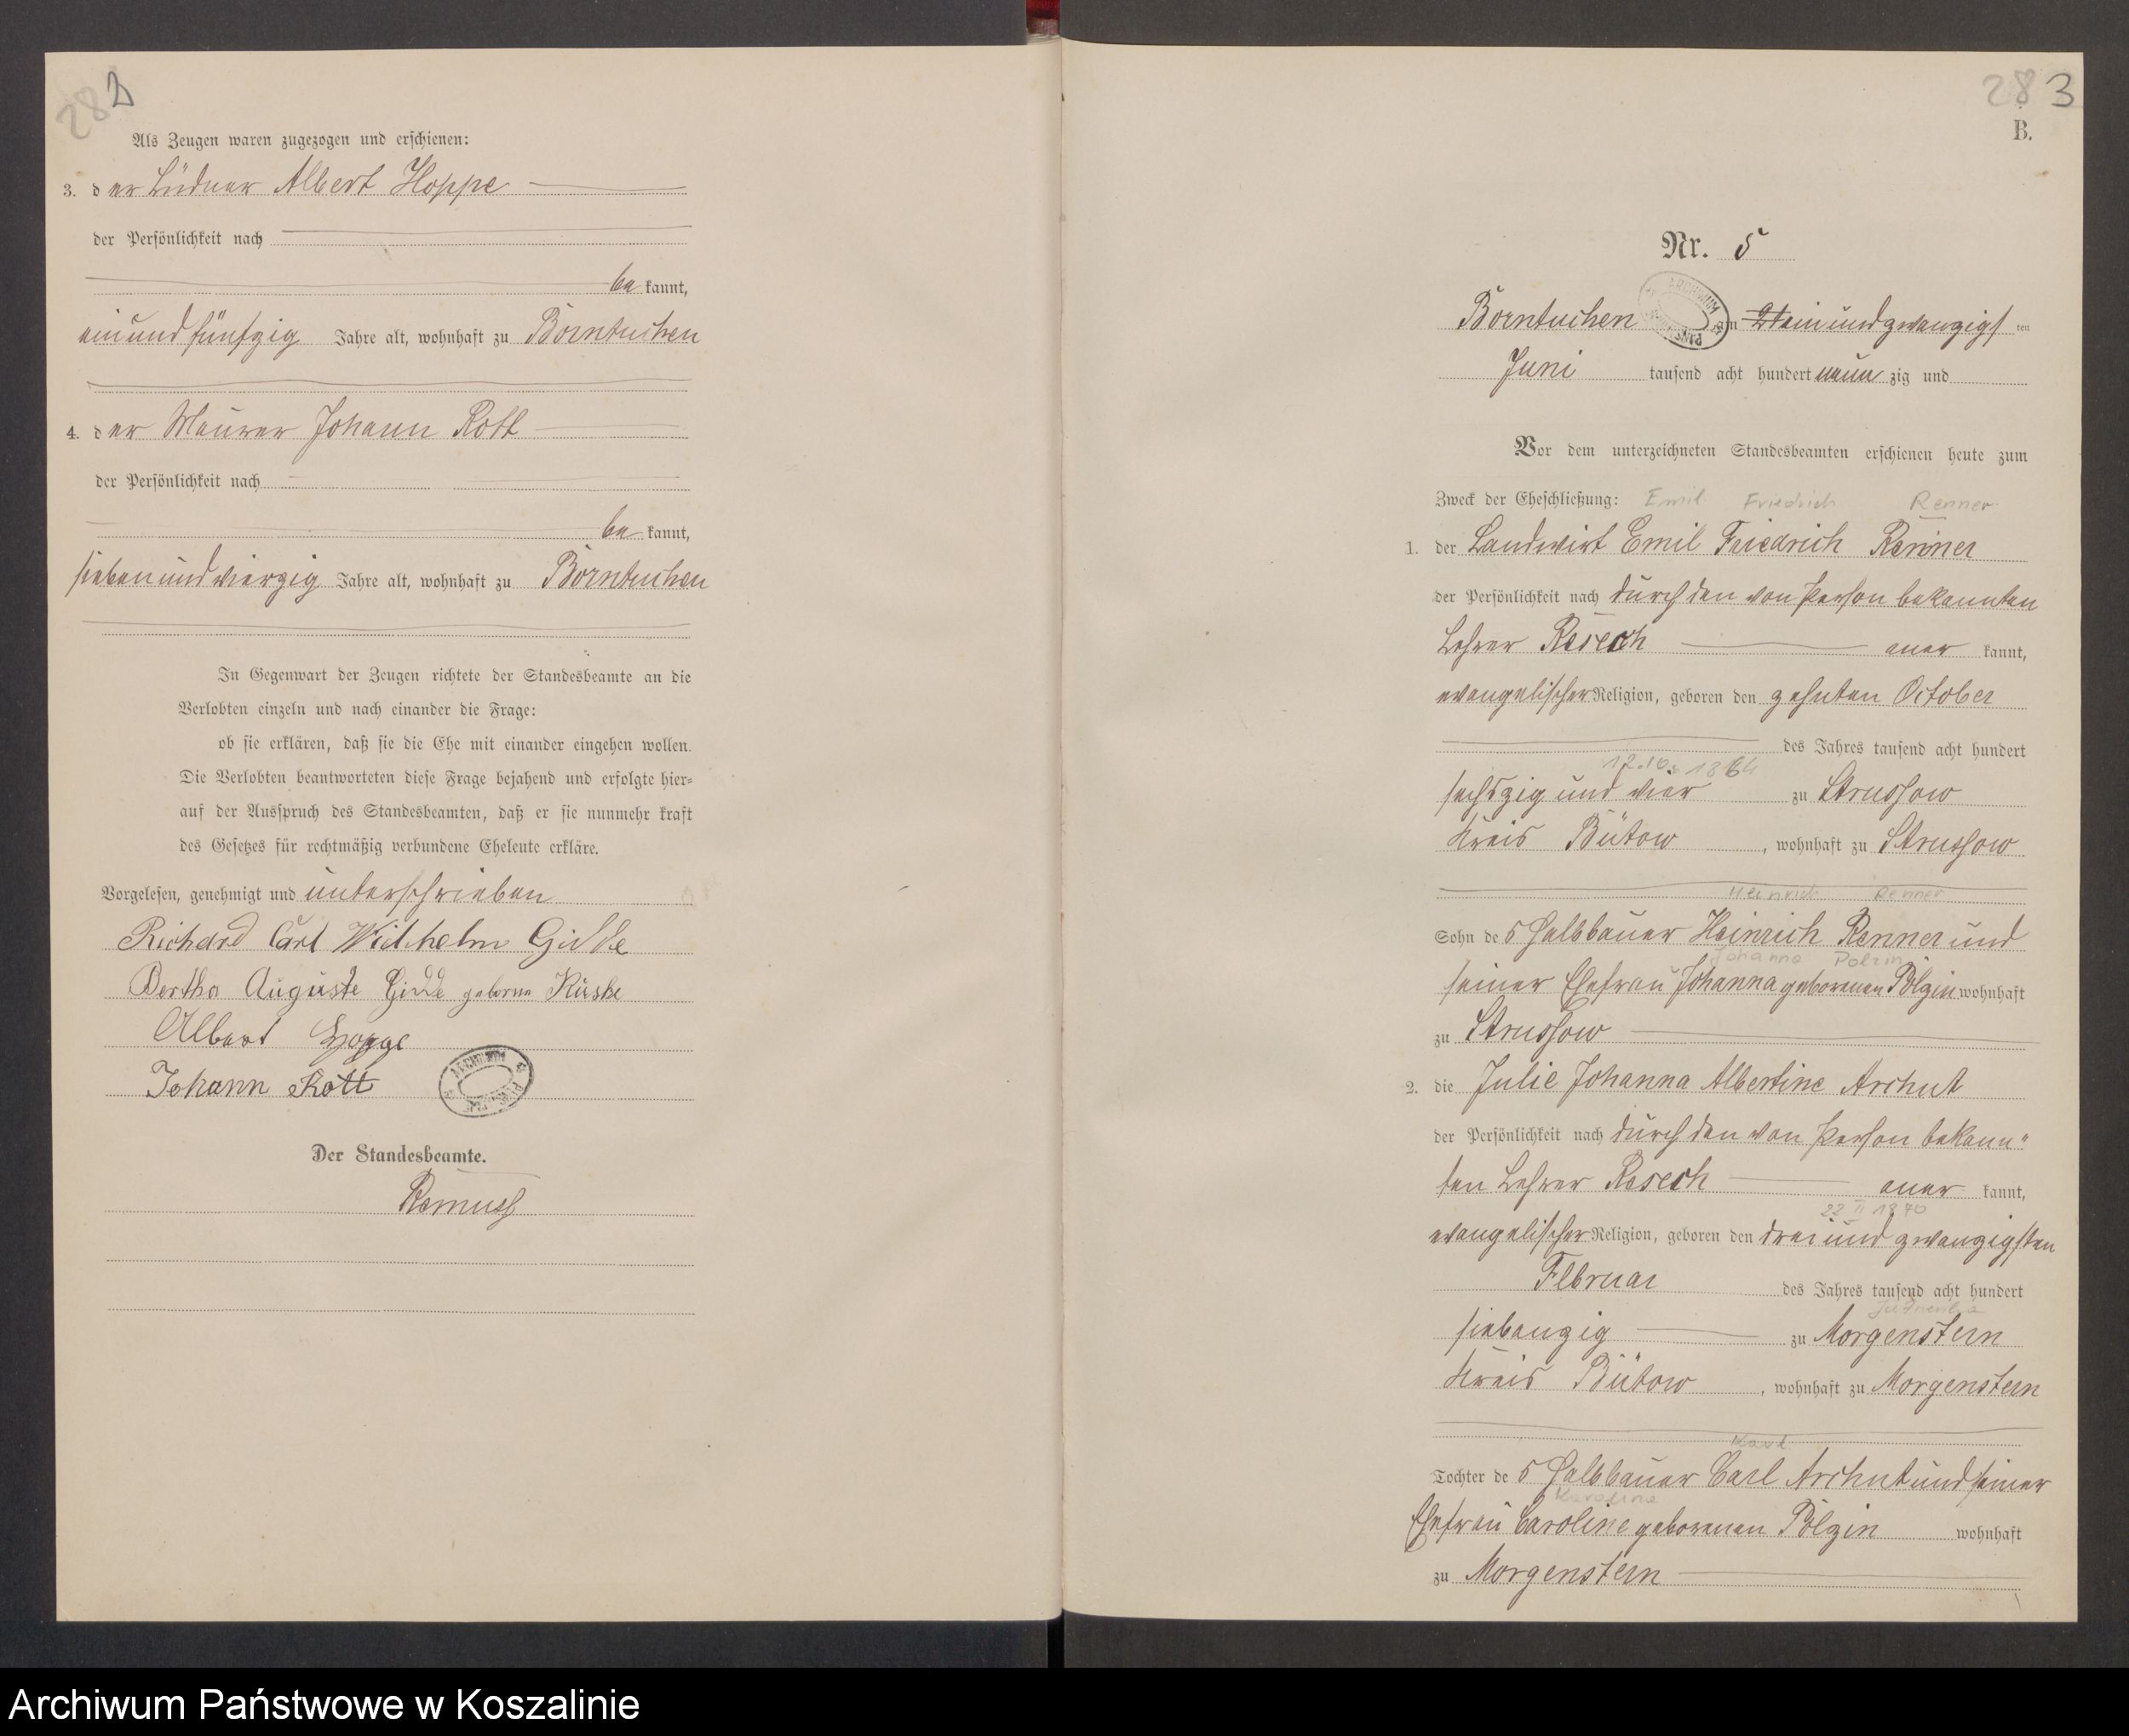 282
Als Zeugen waren zugezogen und erschienen:
3. der Büdner Albert Hoppe
der Persönlichkeit nach
be kannt,
einundfünfzig Jahre alt, wohnhaft zu Borntuchen
4. der Maurer Johann Rott
der Persönlichkeit nach
be kannt,
siebenundvierzig Jahre alt, wohnhaft zu Borntuchen
In Gegenwart der Zeugen richtete der Standesbeamte an die
Verlobten einzeln und nach einander die Frage:
ob sie erklären, daß sie die Ehe mit einander eingehen wollen.
Die Verlobten beantworteten diese Frage bejahend und erfolgte hier-
auf der Ausspruch des Standesbeamten, daß er sie nunmehr kraft
des Gesetzes für rechtmäßig verbundene Eheleute erkläre.
Vorgelesen, genehmigt und unterschrieben
Richard Carl Wilhelm Gidde
Bertha Auguste Gidde geborne Kuske
Albert Hoppe
Johann Rott
ARCHIWUM
Der Standesbeamte.
Remuss
283
B.
Nr. 5
Borntuchen am 21 einundzwanzigsten
ARCHIWUM
Juni tausend acht hundert neun zig und
Vor dem unterzeichneten Standesbeamten erschienen heute zum
Zweck der Eheschließung: Emil Friedrich Renner
1. der Landwirt Emil Friedrich Renner
der Persönlichkeit nach durch den von Person bekannten
Lehrer Resech aner kannt,
evangelischer Religion, geboren den zehnten October
des Jahres tausend acht hundert
1864
sechszig und vier zu Strussow
Kreis Bütow, wohnhaft zu Strussow
Heinrich Renner
Sohn des Halbbauer Heinrich Renner und
Johanna Polzin
seiner Ehefrau Johanna geborenen Polzin wohnhaft
zu Strussow
2. die Julie Johanna Albertine Archut
der Persönlichkeit nach durch den von Person bekann"
ten Lehrer Resech aner kannt,
22 II 1870
evangelischer Religion, geboren den drei und zwanzigsten
Februar des Jahres tausend acht hundert
Jutrzenka
siebenzig zu Morgenstern
Kreis Bütow, wohnhaft zu Morgenstern
Karl
Tochter des Halbbauer Carl Archut und seiner
Karoline
Ehefrau Caroline geborenen Polzin wohnhaft
zu Morgenstern
Archiwum Państwowe w Koszalinie